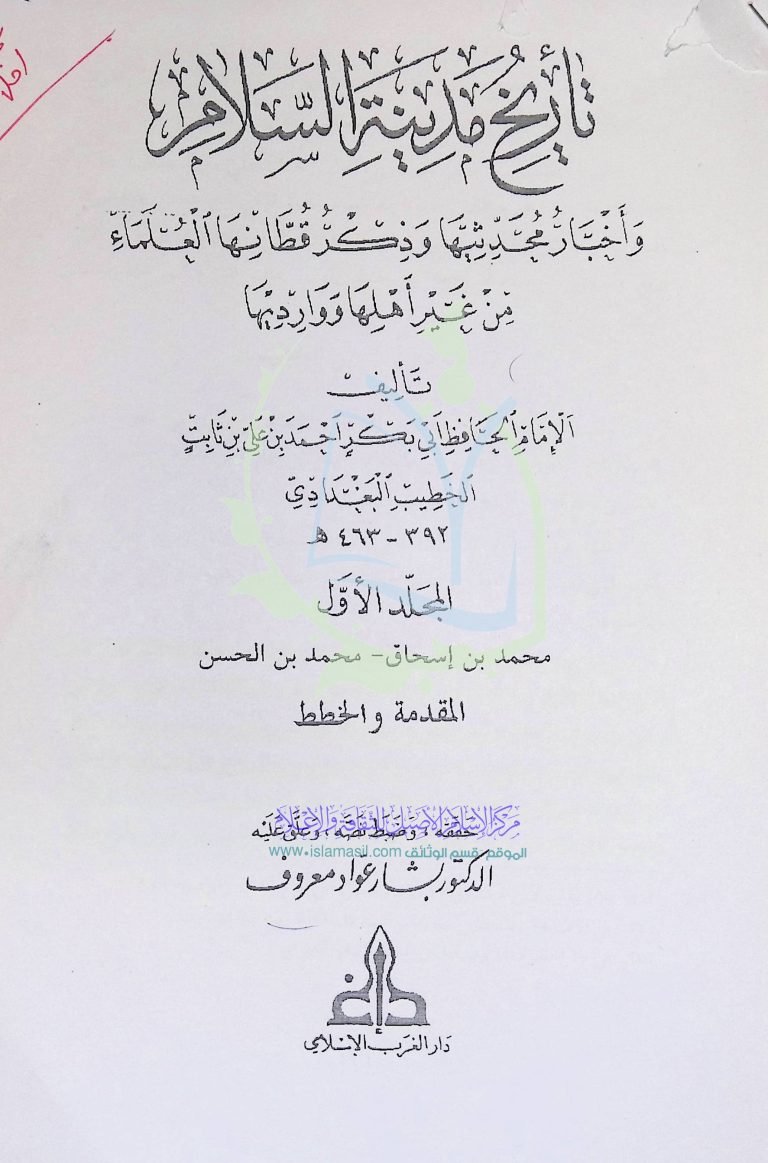 تَأْرِيخُ مَدِينَةِ السَّلَامِ
وَأَخْبَارُ مُحَدِّثِيهَا وَذِكْرُ قُطَّانِهَا ٱلْعُلَمَاءِ
مِنْ غَيْرِ أَهْلِهَا وَوَارِدِيهَا
تَأليف
اَلْإِمَامِ ٱلْحَافِظِ أَبِي بَكْرٍ أَحْمَدَ بْنِ عَلِيِّ بْنِ ثَابِتٍ
اَلْخَطِيبِ ٱلْبَغْدَادِيِّ
٣٩٢ - ٤٦٣ هـ
المجلّد الأوَّل
محمد بن إسحاق - محمد بن الحسن
المقدمة والخطط
مركز الإسلام الأصيل للثقافة والإعلام
حَقَّقَهُ ، وَضَبَطَ نَصَّهُ ، وَعَلَّقَ عَلَيْهِ
الموقع قسم الوثائق www.islamasil.com
الدكتور بشار عوّاد معروف
دار الغرب الإسلامي